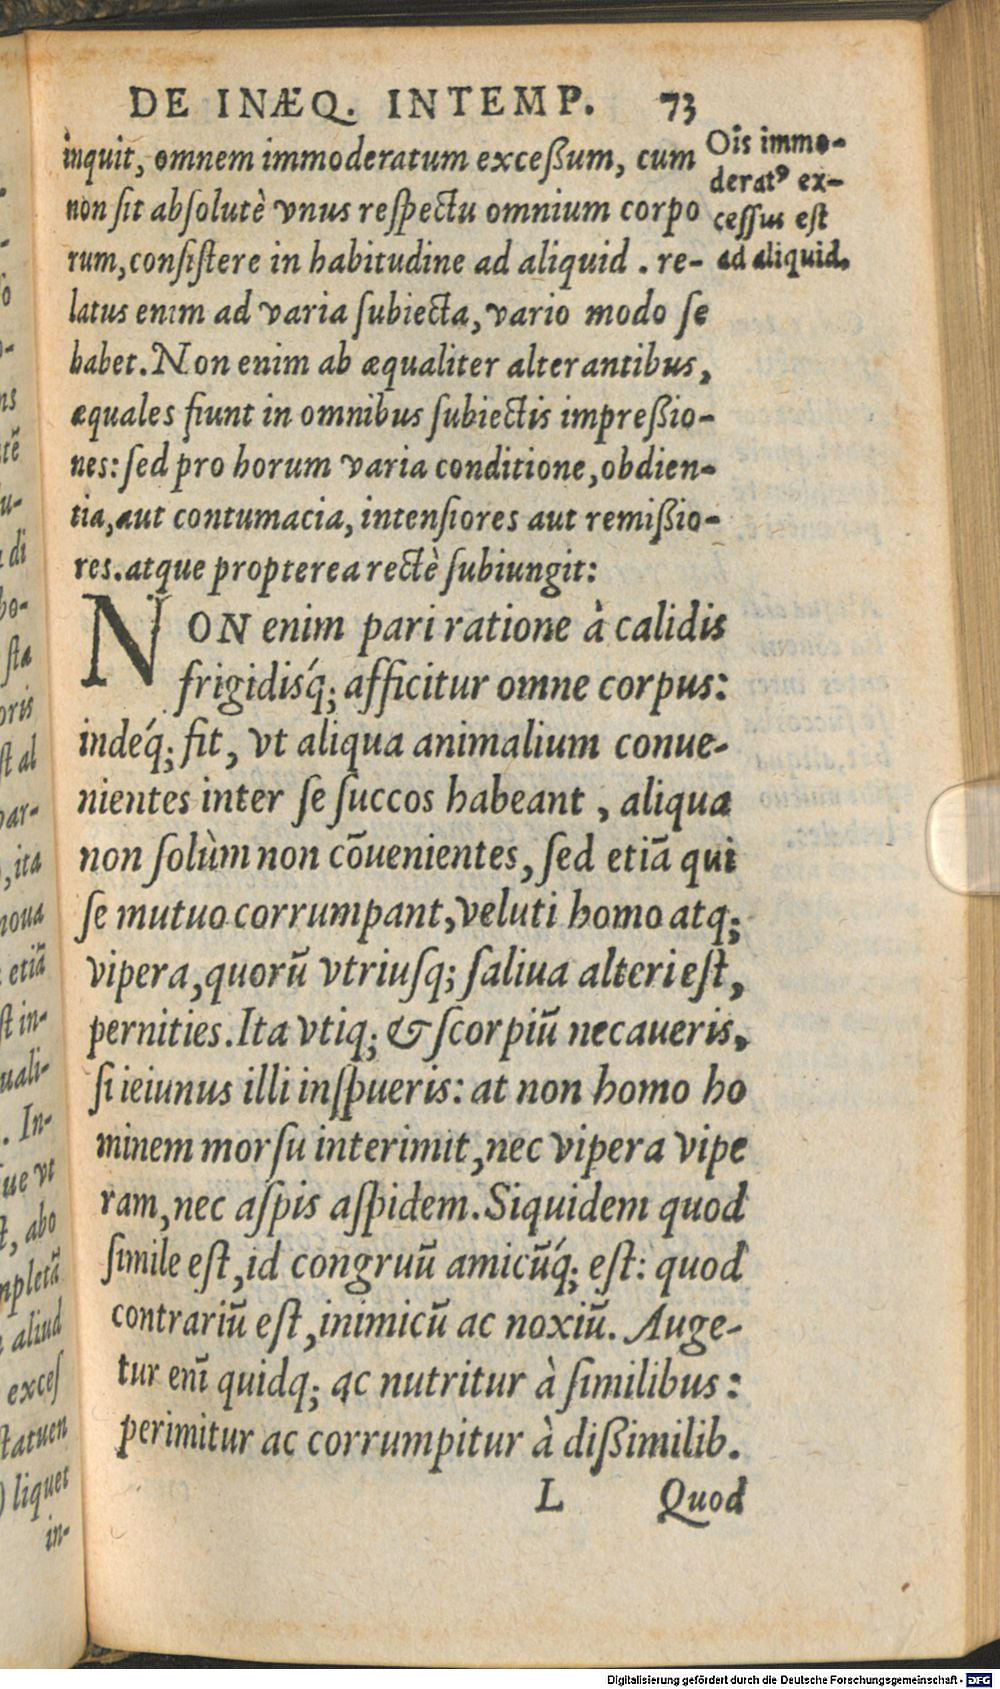 DE INÆQ. INTEMP. 73
inquit, omnem immoderatum exceßum, cum
non ſit abſolutè vnus reſpectu omnium corpo
rum, conſiſtere in habitudine ad aliquid. re-
latus enim ad varia ſubiecta, vario modo ſe
habet. Non enim ab æqualiter alterantibus,
æquales fiunt in omnibus ſubiectis impreßio-
nes: ſed pro horum varia conditione, obdien-
tia, aut contumacia, intenſiores aut remißio-
res. atque propterea rectè ſubiungit:
Oĩs immo-
deratꝰ ex-
ceſſus eſt
ad aliquid.
NON enim pari ratione à calidis
frigidiśq; afficitur omne corpus:
indéq; fit, vt aliqua animalium conue-
nientes inter ſe ſuccos habeant, aliqua
non ſolùm non cōuenientes, ſed etiā qui
ſe mutuo corrumpant, veluti homo atq;
vipera, quorū vtriuſq; ſaliua alteri eſt,
pernities. Ita vtiq; & ſcorpiū necaueris,
ſi ieiunus illi inſpueris: at non homo ho
minem morſu interimit, nec vipera vipe
ram, nec aſpis aſpidem. Siquidem quod
ſimile eſt, id congruū amicū́q; eſt: quod
contrariū eſt, inimicū ac noxiū. Auge-
tur em̄ quidq; ac nutritur à ſimilibus:
perimitur ac corrumpitur à dißimilib.
L Quod
ſta
oris
ſt al
par-
, ita
noua
etiā
ſt in-
uali-
. In-
ſue vt
ſt, abo
mpletā
aliud
exceſ
ſtatuen
) liquet
in-
Digitalisierung gefördert durch die Deutsche Forschungsgemeinschaft - DFG